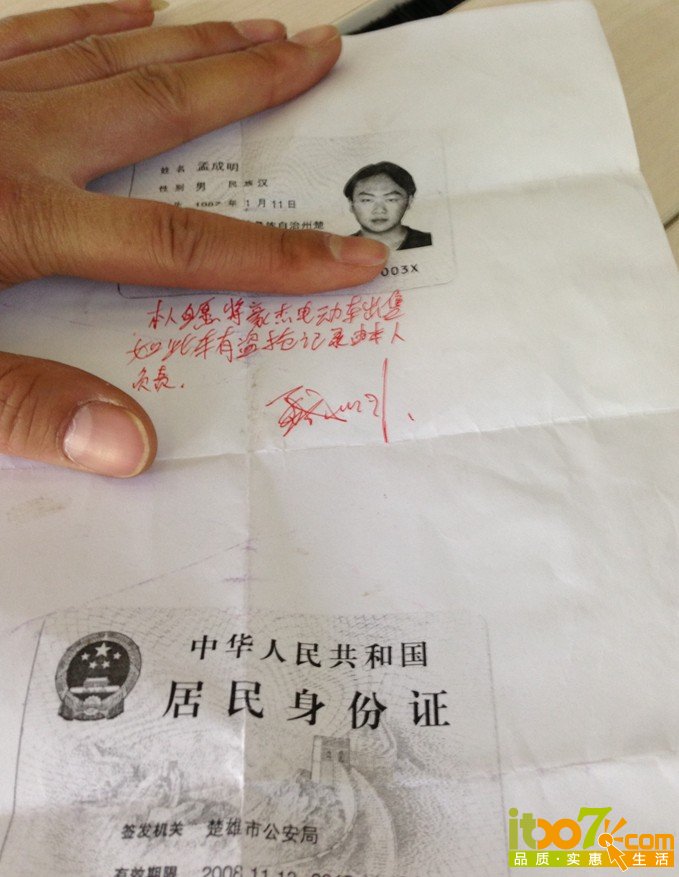 姓名 孟成明
性别 男 民族 汉
1987 年 1 月 11 日
族自治州楚
003X
本人自愿将豪杰电动车出售
如此车有盗抢记录由本人
负责.
中华人民共和国
居民身份证
签发机关 楚雄市公安局
有效期限 2008.11.12
itoo7.com
品质·实惠 生活